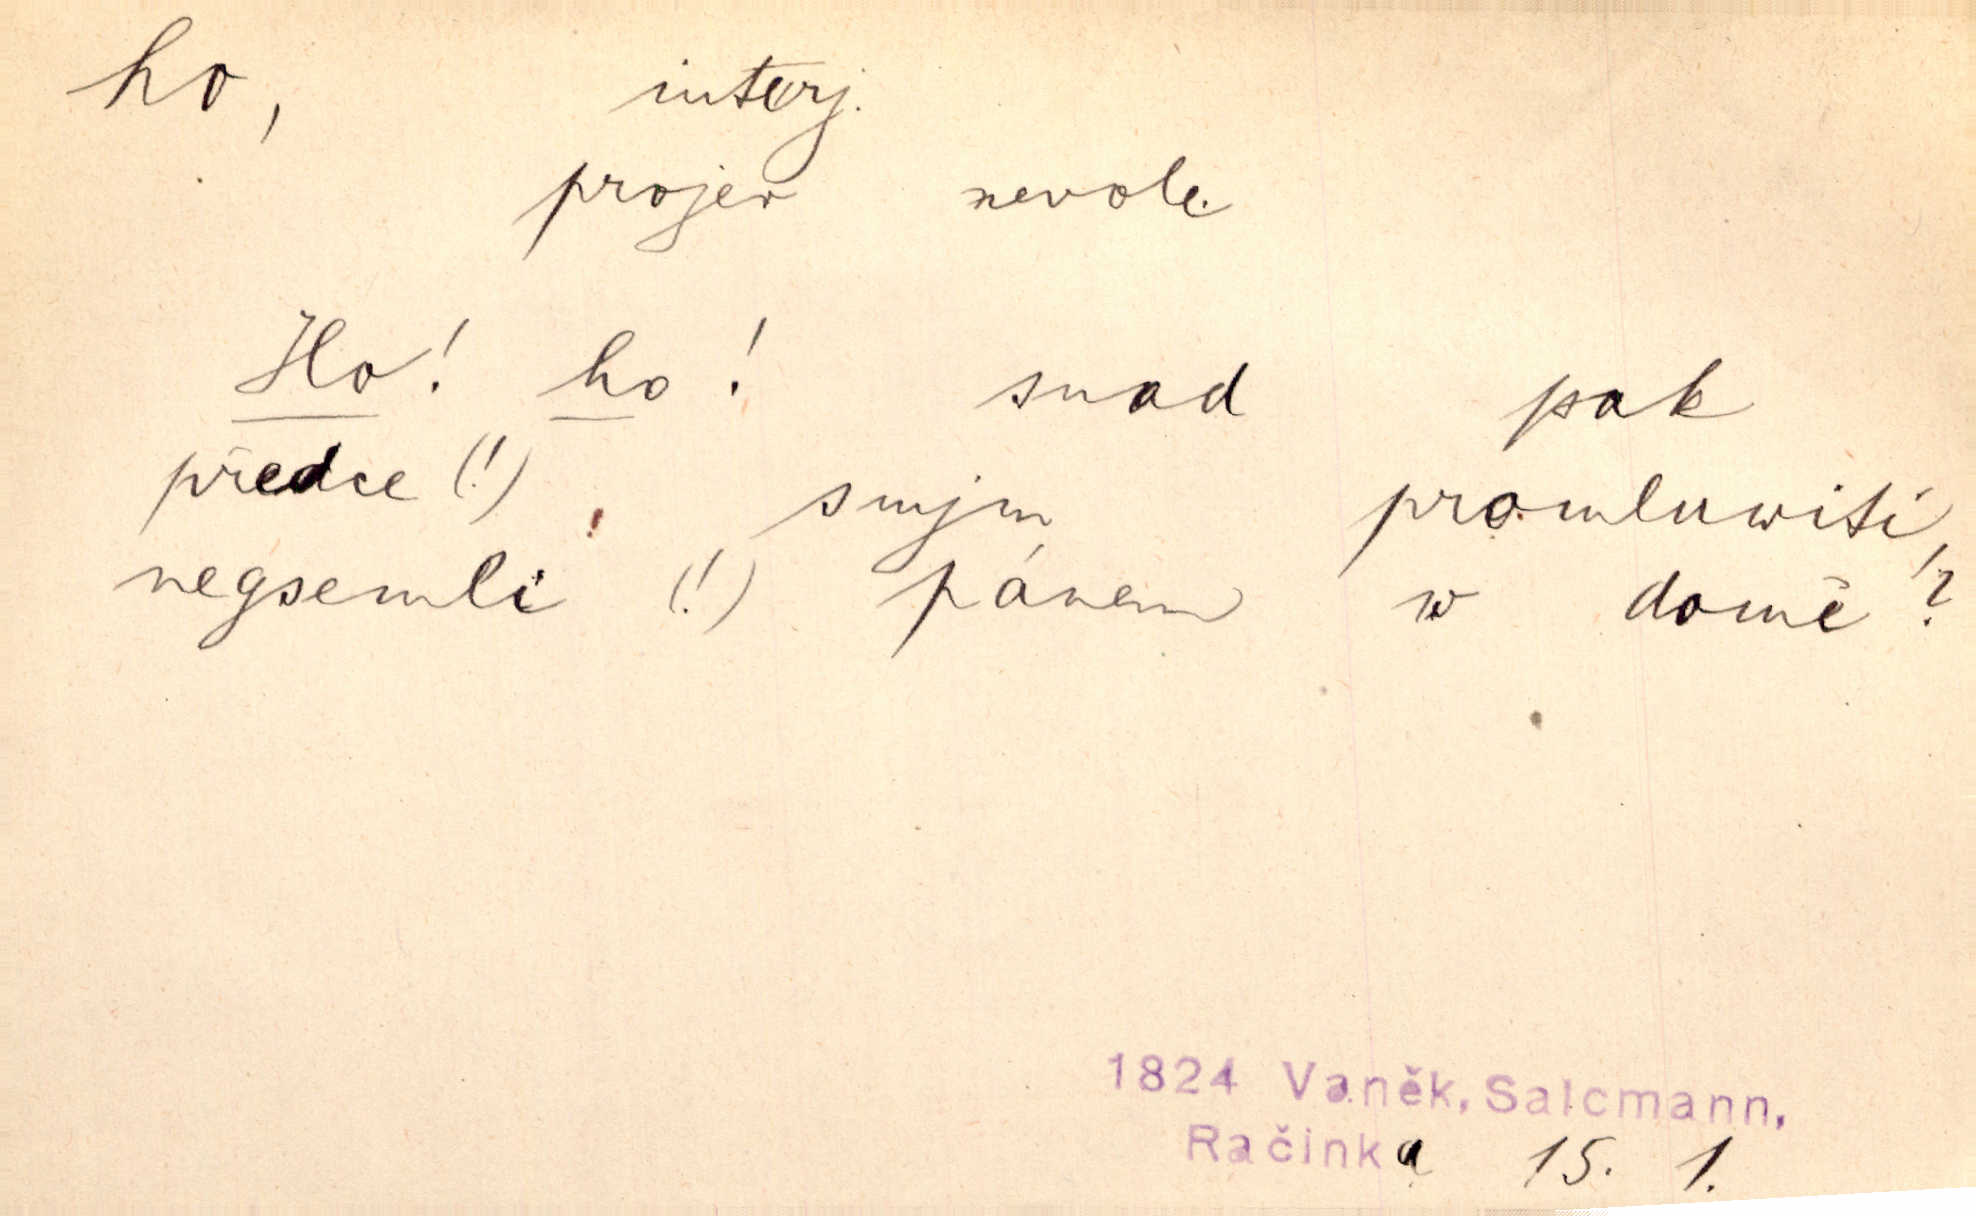 ho, interj.
projev nevole
Ho! ho! snad pak
předce (!) smjm promluwiti,
negsemli (!) pánem w domě!?
1824 Vaněk, Salcmann,
Račinka 15. 1.